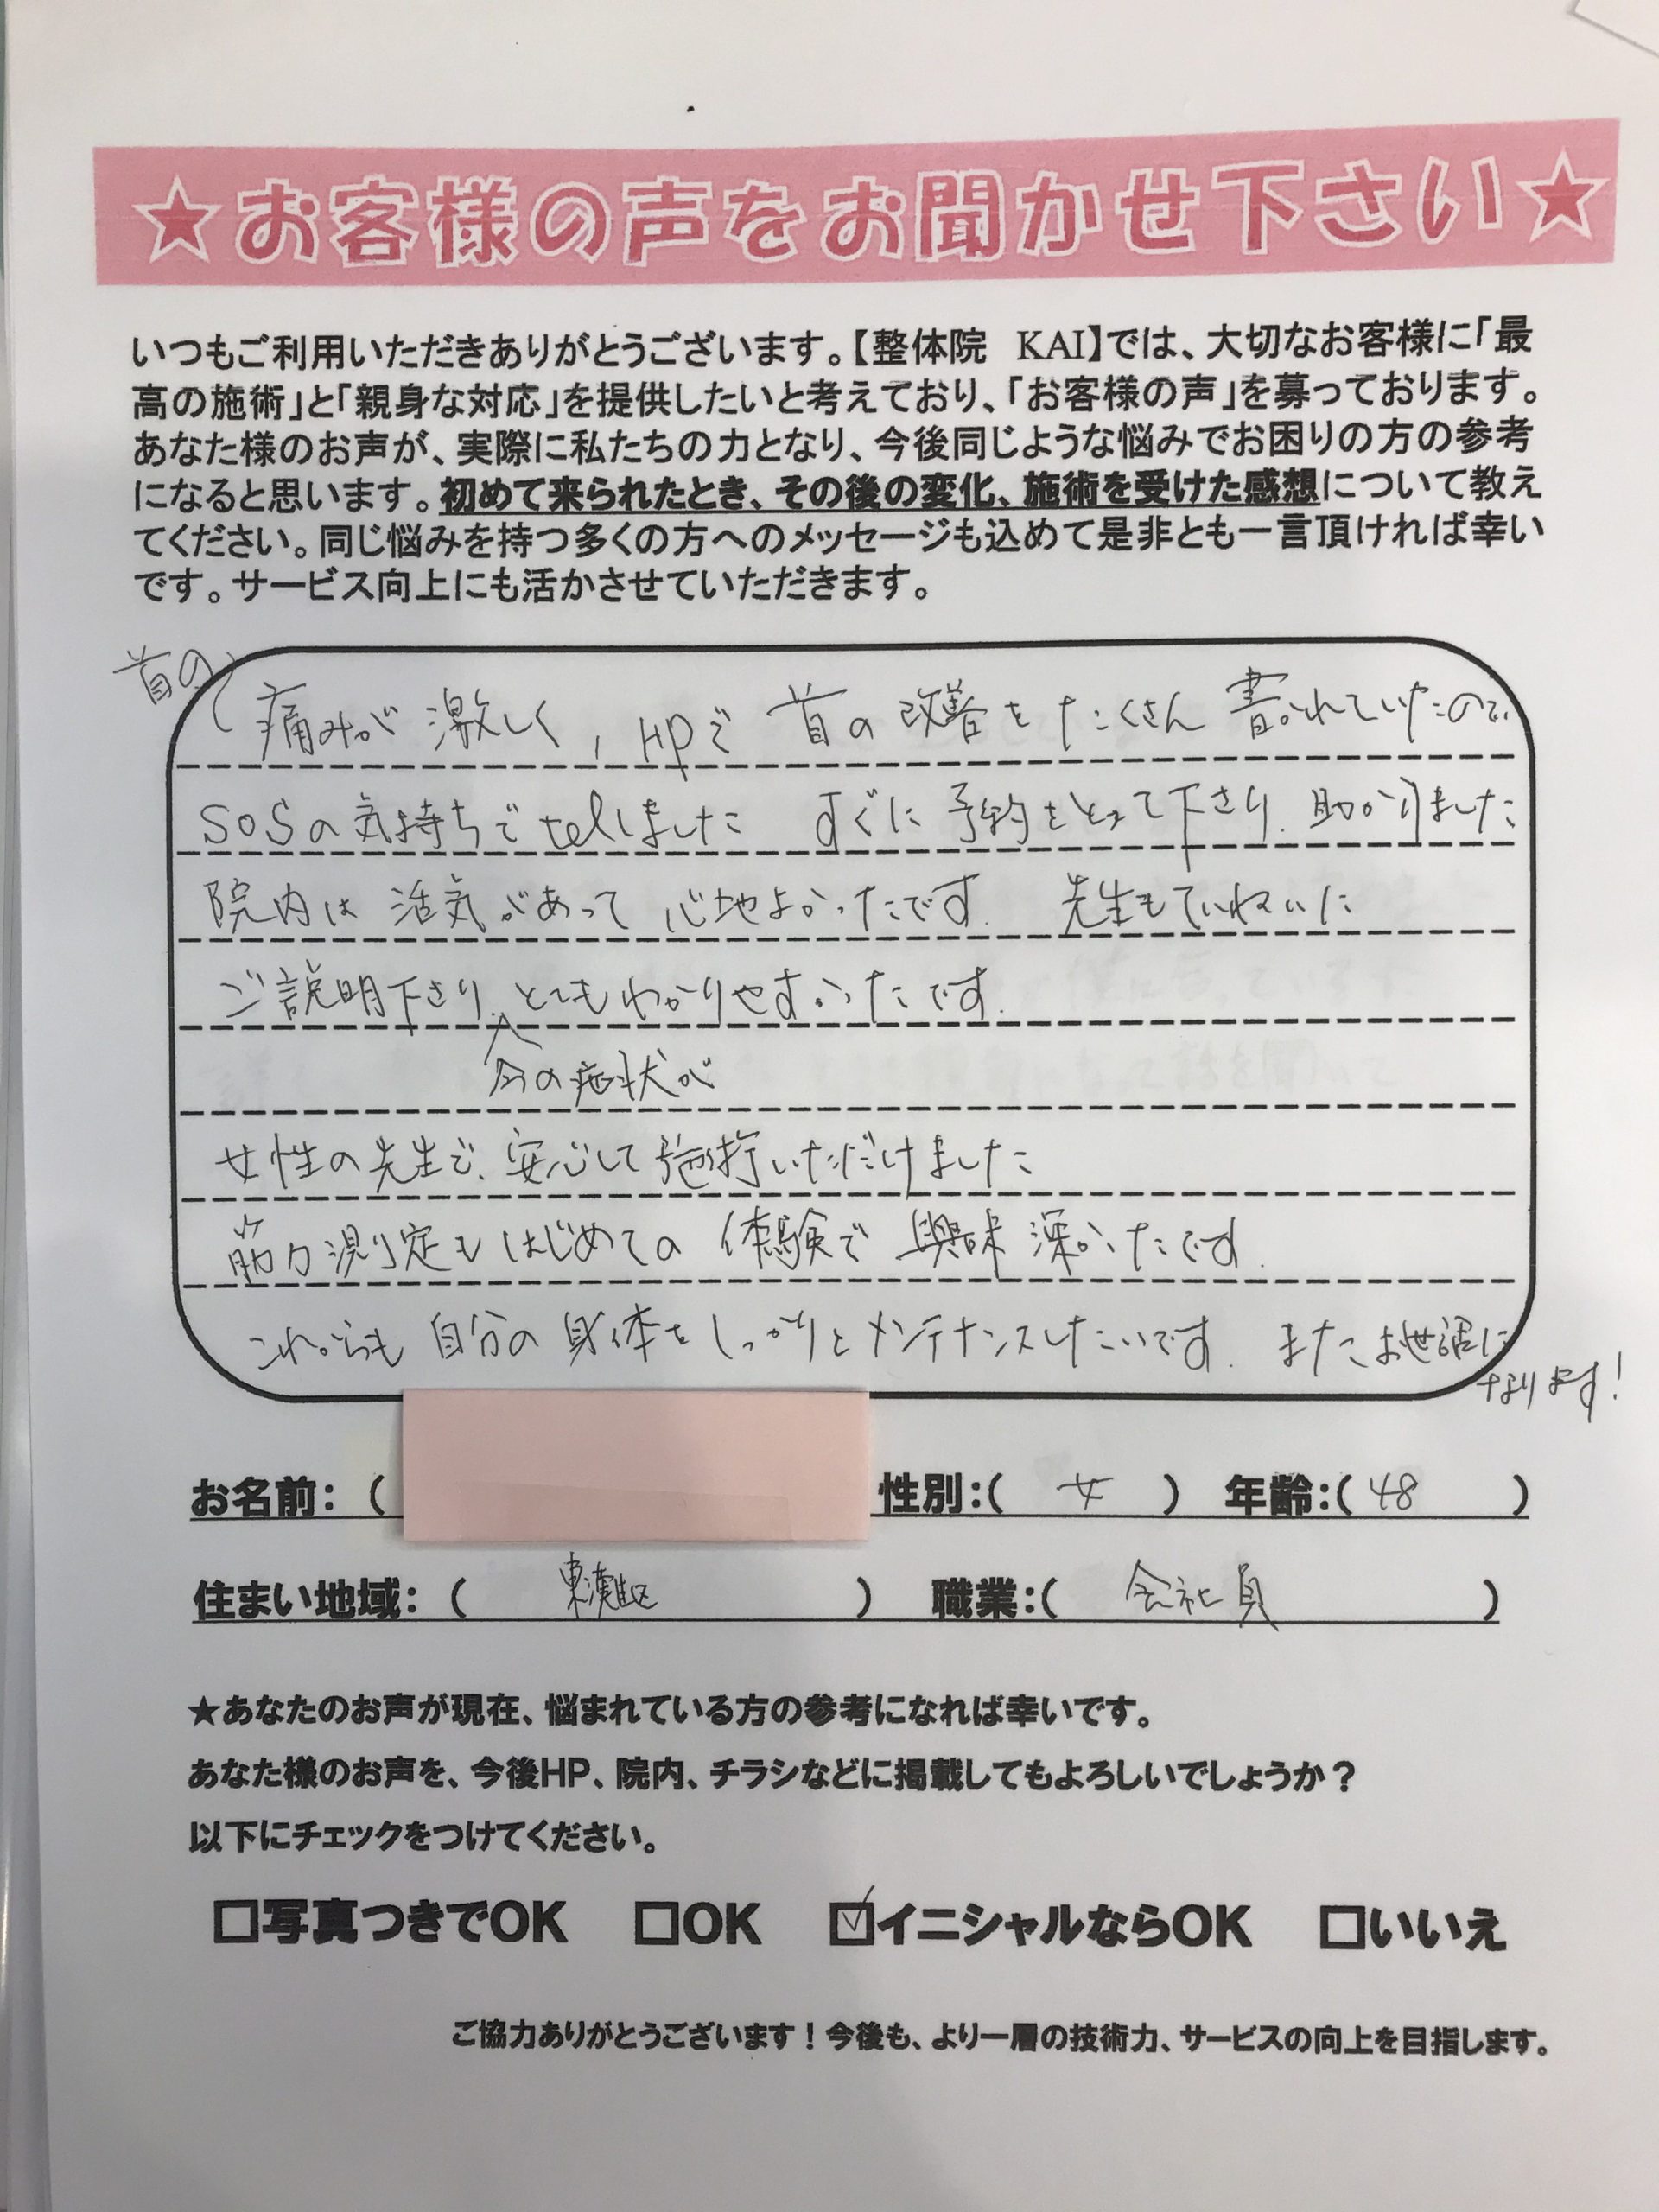 ★お客様の声をお聞かせ下さい★
いつもご利用いただきありがとうございます。【整体院　KAI】では、大切なお客様に「最
高の施術」と「親身な対応」を提供したいと考えており、「お客様の声」を募っております。
あなた様のお声が、実際に私たちの力となり、今後同じような悩みでお困りの方の参考
になると思います。初めて来られたとき、その後の変化、施術を受けた感想について教え
てください。同じ悩みを持つ多くの方へのメッセージも込めて是非とも一言頂ければ幸い
です。サービス向上にも活かさせていただきます。
首の
痛みが激しく、HPで首の改善をたくさん書かれていたので、
SOSの気持ちでtelしました　すぐに予約をとって下さり、助かりました
院内は活気があって心地よかったです。先生もていねいに
ご説明下さり、とてもわかりやすかったです。
今の症状が
女性の先生で、安心して施術いただけました
筋力測定もはじめての体験で興味深かったです。
これからも自分の身体をしっかりとメンテナンスしたいです。またお世話に
なります！
お名前：（　性別：（　女　）　年齢：（　48　）
住まい地域：（　東灘区　）　職業：（　会社員　）
★あなたのお声が現在、悩まれている方の参考になれば幸いです。
あなた様のお声を、今後HP、院内、チラシなどに掲載してもよろしいでしょうか？
以下にチェックをつけてください。
□写真つきでOK　□OK　☑イニシャルならOK　□いいえ
ご協力ありがとうございます！今後も、より一層の技術力、サービスの向上を目指します。